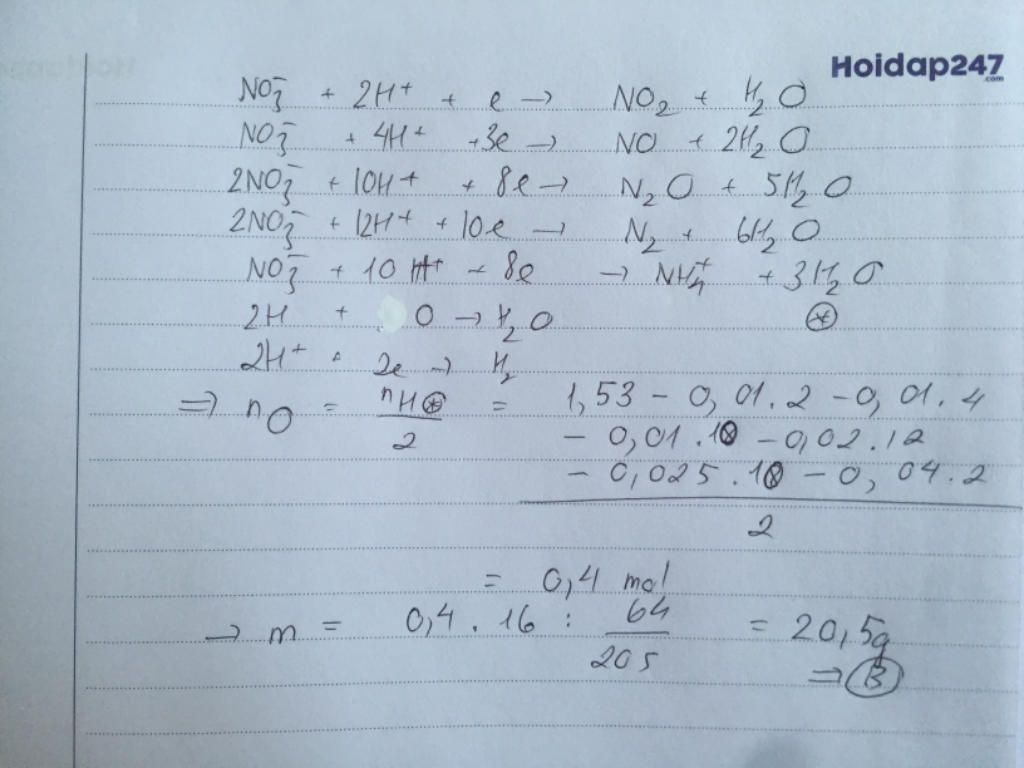 Hoidap247
.com
NO₃⁻ + 2H⁺ + e → NO₂ + H₂O
NO₃⁻ + 4H⁺ + 3e → NO + 2H₂O
2NO₃⁻ + 10H⁺ + 8e → N₂O + 5H₂O
2NO₃⁻ + 12H⁺ + 10e → N₂ + 6H₂O
NO₃⁻ + 10H⁺ + 8e → NH₄⁺ + 3H₂O
2H + O → H₂O (*)
2H⁺ + 2e → H₂
⇒ nO = nH(*) / 2 = 1,53 - 0,01.2 - 0,01.4
- 0,01.10 - 0,02.12
- 0,025.10 - 0,04.2
2
= 0,4 mol
→ m = 0,4 . 16 : 64/205 = 20,5g
⇒ B